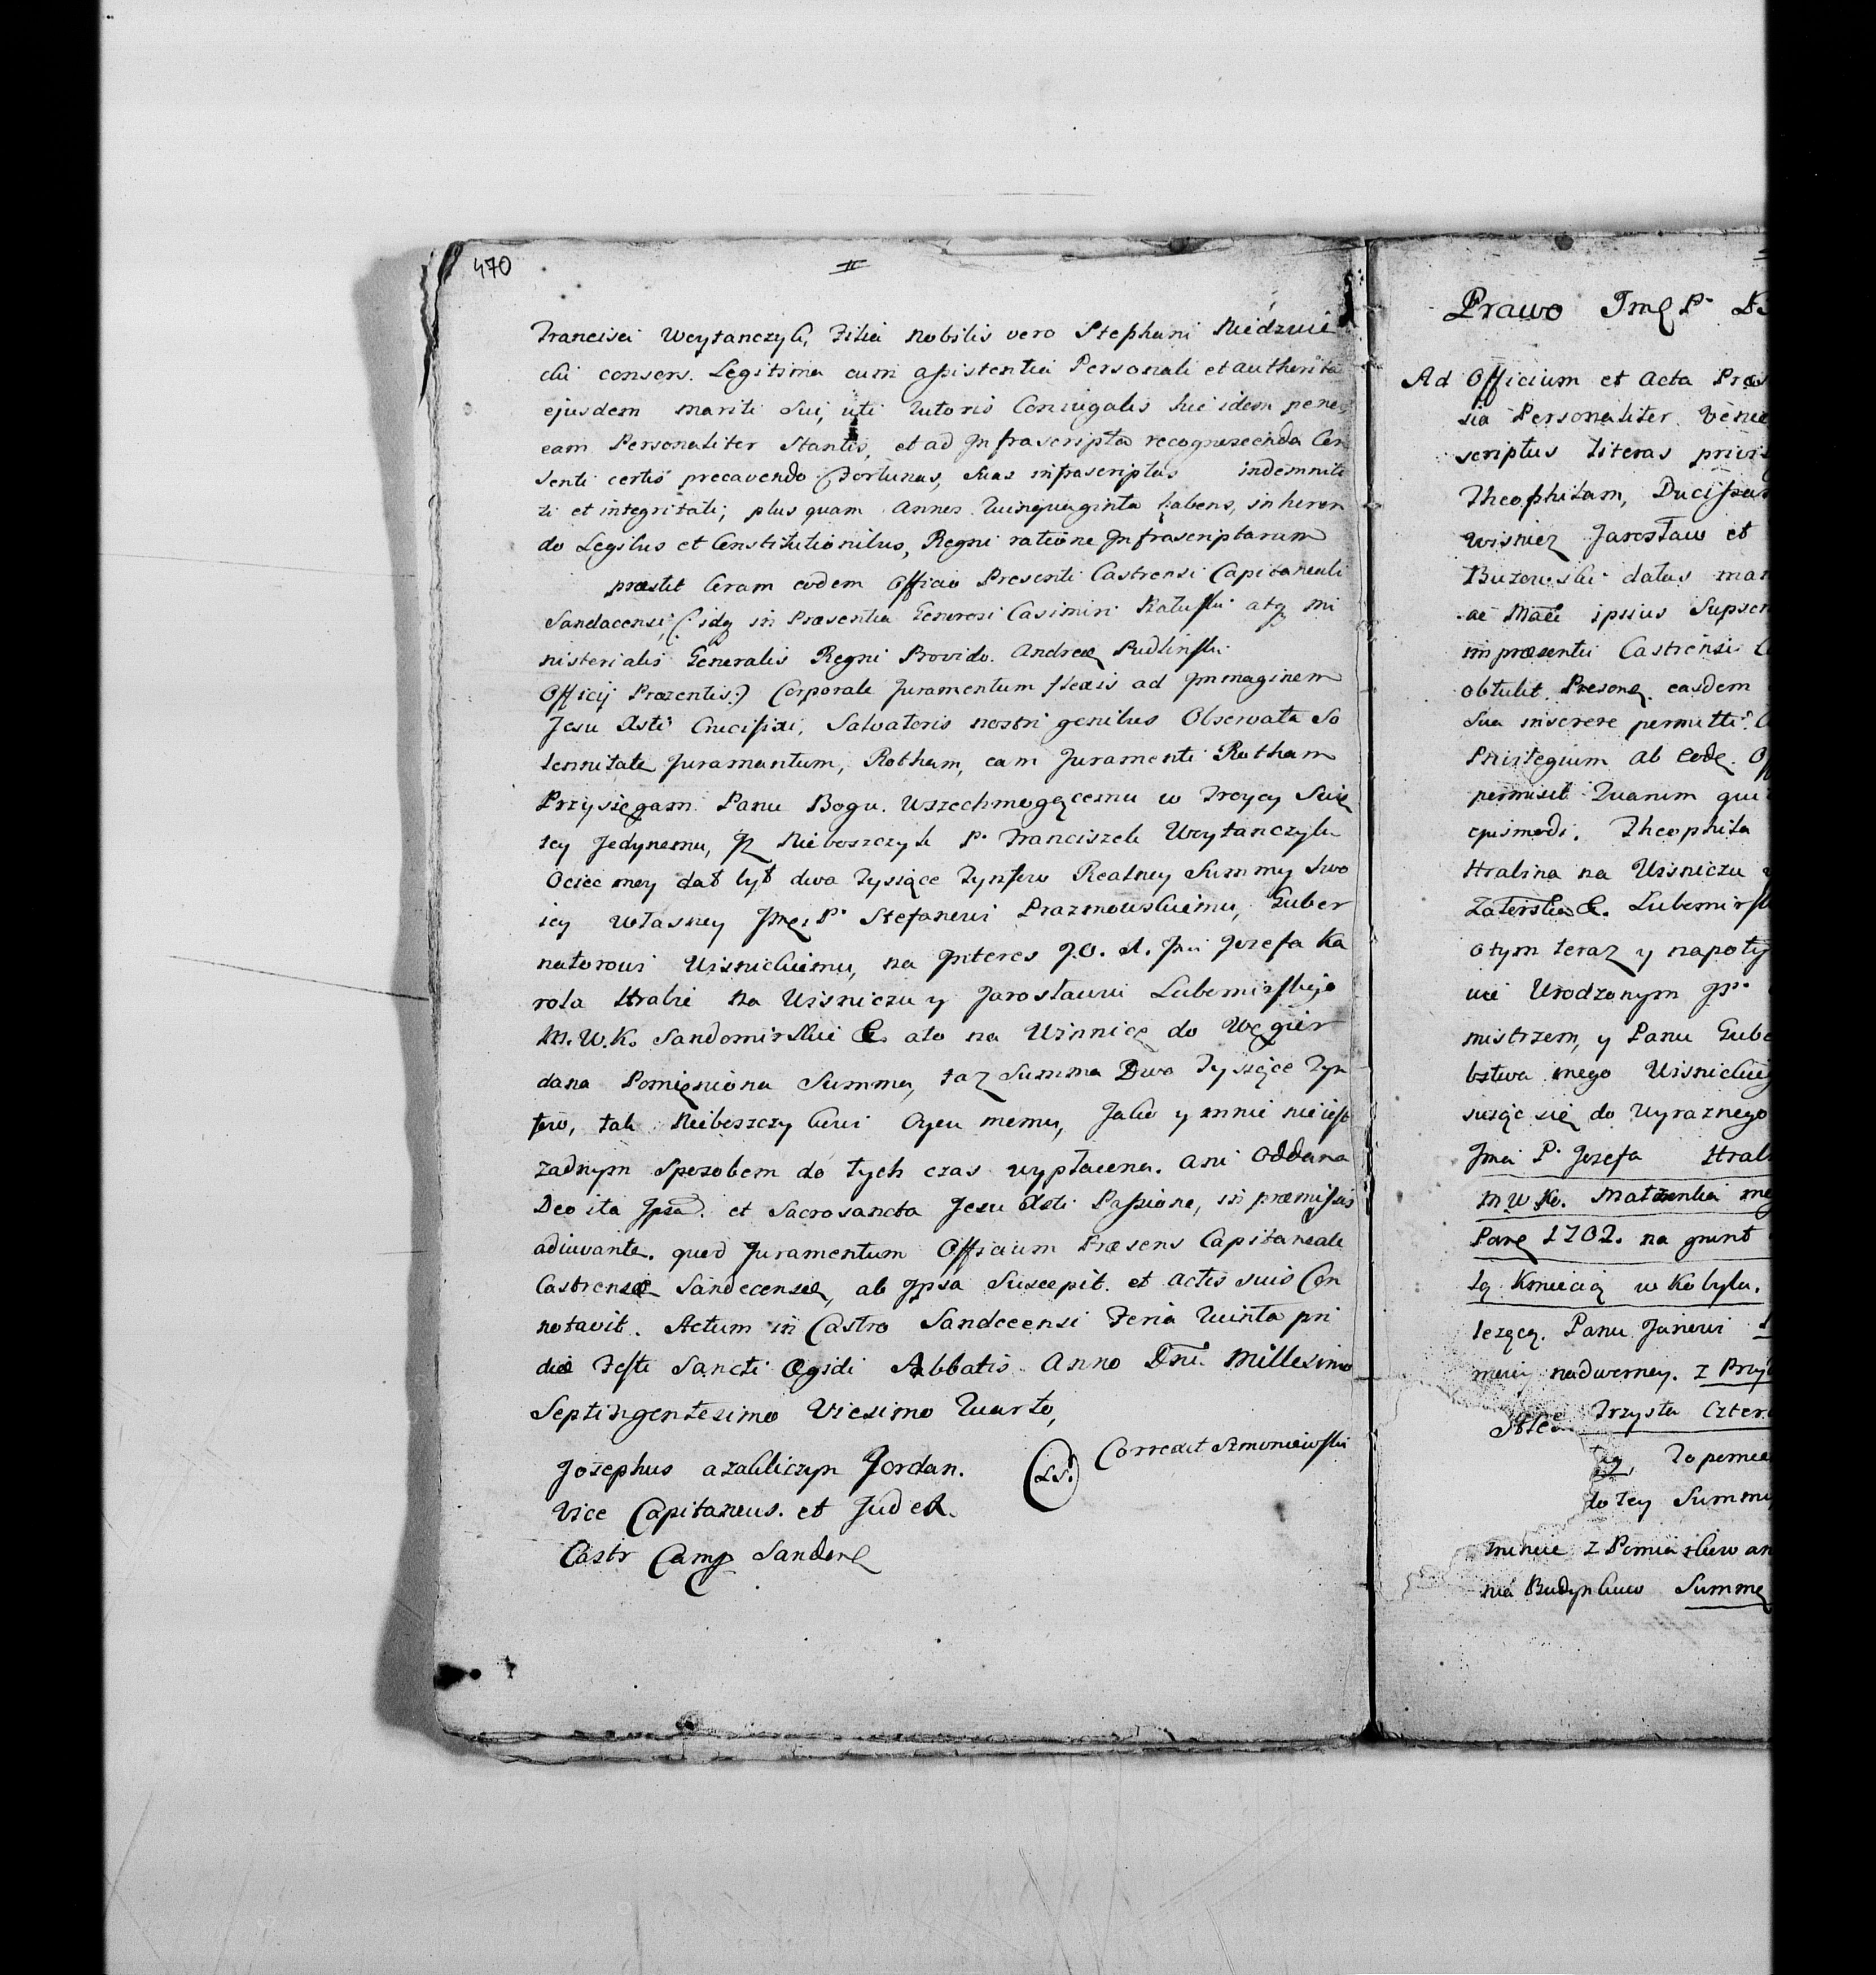 470
II
Francisci Woytanczyk, Filia Nobilis vero Stephani Niedzwie
cki consors. Legitima cum assistentia Personali et authorita
ejusdem mariti sui, uti tutoris Coniugalis hic idem penes
eam Personaliter Stantis, et ad Infrascripta recognoscenda Con
senti certis precavendo Fortunas, suas infrascriptas indemnita
ti et integritati; plus quam Annos Quinquaginta habens, inheren
do Legibus et Constitutionibus, Regni ratione Infrascriptarum
præstit Coram eodem Officio Presenti Castrensi Capitaneali
Sandacensi, (: idq in Præsentia Generosi Casimiri atq mi
nisterialis Generalis Regni Provido. Andreæ Rudlinski
Officij Præzentis:) Corporale Juramentum flexis ad Immaginem
Jesu Xsti Crucifixi, Salvatoris nostri genibus Observata So
lennitate Juramantum, Rotham, eam Juramenti Rotham
Przysięgam Panu Bogu. Wszechmogącemu w Troycy Swię
tey Jedynemu, Jż Nieboszczyk P. Franciszek Woytanczyk
Ociec moy dał był dwa Tysiące Tynfow Realney Summy swo
iey własney Jmę P. Stefanowi Prazmowskiemu, Guber
natorowi Wisnickiemu, na Jnteres J.O. X. Jmi Jozefa Ka
rola Hrabi Na Wisniczu y Jarosławiu Lubomirskiego
M.W.K. Sandomirskie &. ato na Winnice do Węgier
dana Pomięniona Summa, taz Summa Dwa Tysiące Tyn
fow, tak Neiboszczykowi Oycu memu, Jako y mnie nie iest
zadnym sposobem do tych czas wypłacona. ani Oddana
Deo ita Jpsa. et Sacrosancta Jesu Xsti Passione, in præmissis
adiuvante. quod Juramentum Officium Præsens Capitaneale
Castrense Sandecense, ab Ipsa Suscepit. et Actis suis Con
notavit. Actum in Castro Sandecensi Feria Quinta pri
die Festi Sancti Ægidi Abbatis Anno Dni. Millesimo
Septingentesimo Vicesimo Quarto,
Josephus a Zakliczyn Jordan.
(LS.)
Correxit Szmoniewski
Vice Capitaneus. et Judex.
Castr Camp Sandene
Prawo Jmę P.
Ad Officium et Acta Præs
sia Personaliter Venie
scriptus literas privi
Theophilam, Ducissam
Wisnicz Jarosław et
Buzowski datas man
ac Mate ipsius Supscr
in præsentii Castrensi
obtulit Presone. easdem
sua inserere permitti.
Privilegium ab Eode. Of
permisit Quarum qui
ejusmodi. Theophila
Hrabina na Wisniczu
Zatorska &. Lubomirsk
otym teraz y napoty
wie Urodzonym JP.
mistrzem, y Panu Gube
bstwa mego Wisnickieg
suiąc się do Wyraznego
Jmci P. Jozefa Hrab
M.W.K. Matzonka me
Pani 1702. na grunt
łą Kmiecią w Kobylu.
lezącą. Panu Janowi
mowy nadworney. z Przy
Trzysta Czter
Zopomie
do tey Summy
nia Budynkow Summę